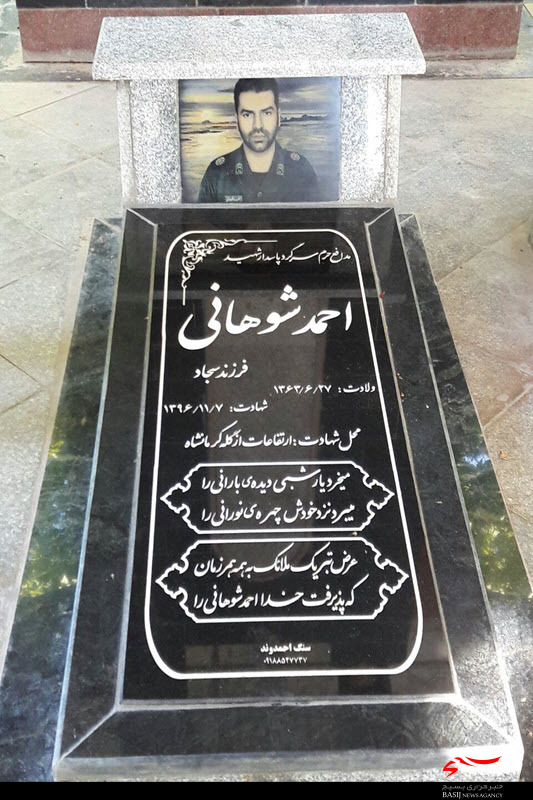 مدافع حرم سرگرد پاسدار شهید
احمد شوهانی
فرزند سجاد
ولادت: ۱۳۶۳/۶/۲۷
شهادت: ۱۳۹۶/۱۱/۷
محل شهادت: ارتفاعات ازگله کرمانشاه
میخرد یار شبی دیده‌ی بارانی را
میبرد نزد خودش چهره‌ی نورانی را
عرض تبریک ملائک به همه همرزمان
که پذیرفت خدا احمد شوهانی را
سنگ احمدوند
۰۹۱۸۸۵۲۷۷۳۷
خبرگزاری بسیج
BASIJ NEWS AGANCY